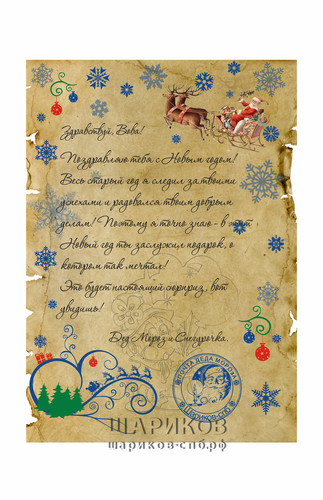 Здравствуй, Вова!
Поздравляю тебя с Новым годом!
Весь старый год я следил за твоими
успехами и радовался твоим добрым
делам! Поэтому я точно знаю - в этот
Новый год ты заслужил подарок, о
котором так мечтал!
Это будет настоящий сюрприз, вот
увидишь!
Дед Мороз и Снегурочка.
ПОЧТА ДЕДА МОРОЗА
ШАРИКОВ-СПБ
ШАРИКОВ
шариков-спб.рф